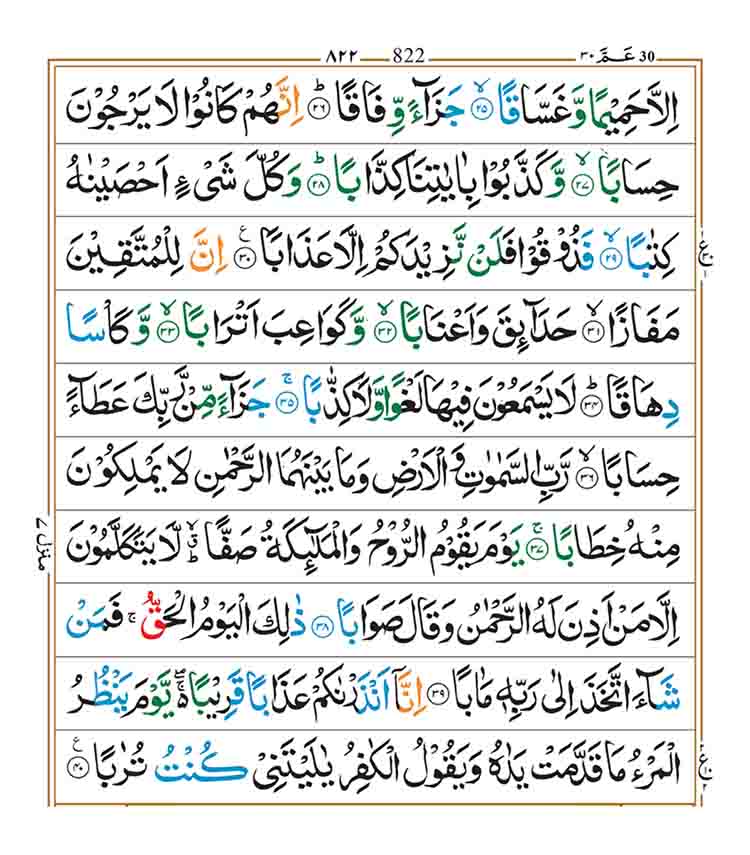 30 عَـمَّ ٣٠ 822 ٨٢٢
اِلَّا حَمِيْمًا وَّغَسَّاقًا ۙ‏﴿۲۵﴾ جَزَآءً وِّفَاقًا ؕ‏﴿۲۶﴾ اِنَّهُمْ كَانُوْا لَا يَرْجُوْنَ
حِسَابًا ۙ‏﴿۲۷﴾ وَّكَذَّبُوْا بِاٰيٰتِنَا كِذَّابًا ؕ‏﴿۲۸﴾ وَكُلَّ شَىْءٍ اَحْصَيْنٰهُ
كِتٰبًا ۙ‏﴿۲۹﴾ فَذُوْقُوْا فَلَنْ نَّزِيْدَكُمْ اِلَّا عَذَابًا ‏﴿۳۰﴾ ع اِنَّ لِلْمُتَّقِيْنَ
مَفَازًا ۙ‏﴿۳۱﴾ حَدَآئِقَ وَاَعْنَابًا ۙ‏﴿۳۲﴾ وَّكَوَاعِبَ اَتْرَابًا ۙ‏﴿۳۳﴾ وَّكَاْسًا
دِهَاقًا ؕ‏﴿۳۴﴾ لَا يَسْمَعُوْنَ فِيْهَا لَغْوًا وَّلَا كِذّٰبًا ۚ‏﴿۳۵﴾ جَزَآءً مِّنْ رَّبِّكَ عَطَآءً
حِسَابًا ۙ‏﴿۳۶﴾ رَّبِّ السَّمٰوٰتِ وَالْاَرْضِ وَمَا بَيْنَهُمَا الرَّحْمٰنِ لَا يَمْلِكُوْنَ
مِنْهُ خِطَابًا ۚ‏﴿۳۷﴾ يَوْمَ يَقُوْمُ الرُّوْحُ وَالْمَلٰٓئِكَةُ صَفًّا ؕۙ لَّا يَتَكَلَّمُوْنَ
اِلَّا مَنْ اَذِنَ لَهُ الرَّحْمٰنُ وَقَالَ صَوَابًا ‏﴿۳۸﴾ ذٰلِكَ الْيَوْمُ الْحَقُّ ۚ فَمَنْ
شَآءَ اتَّخَذَ اِلٰى رَبِّهٖ مَاٰبًا ‏﴿۳۹﴾ اِنَّاۤ اَنْذَرْنٰكُمْ عَذَابًا قَرِيْبًا ۖۚ يَّوْمَ يَنْظُرُ
الْمَرْءُ مَا قَدَّمَتْ يَدٰهُ وَيَقُوْلُ الْكٰفِرُ يٰلَيْتَنِىْ كُنْتُ تُرٰبًا ‏﴿۴۰﴾ ع
منزل ٧